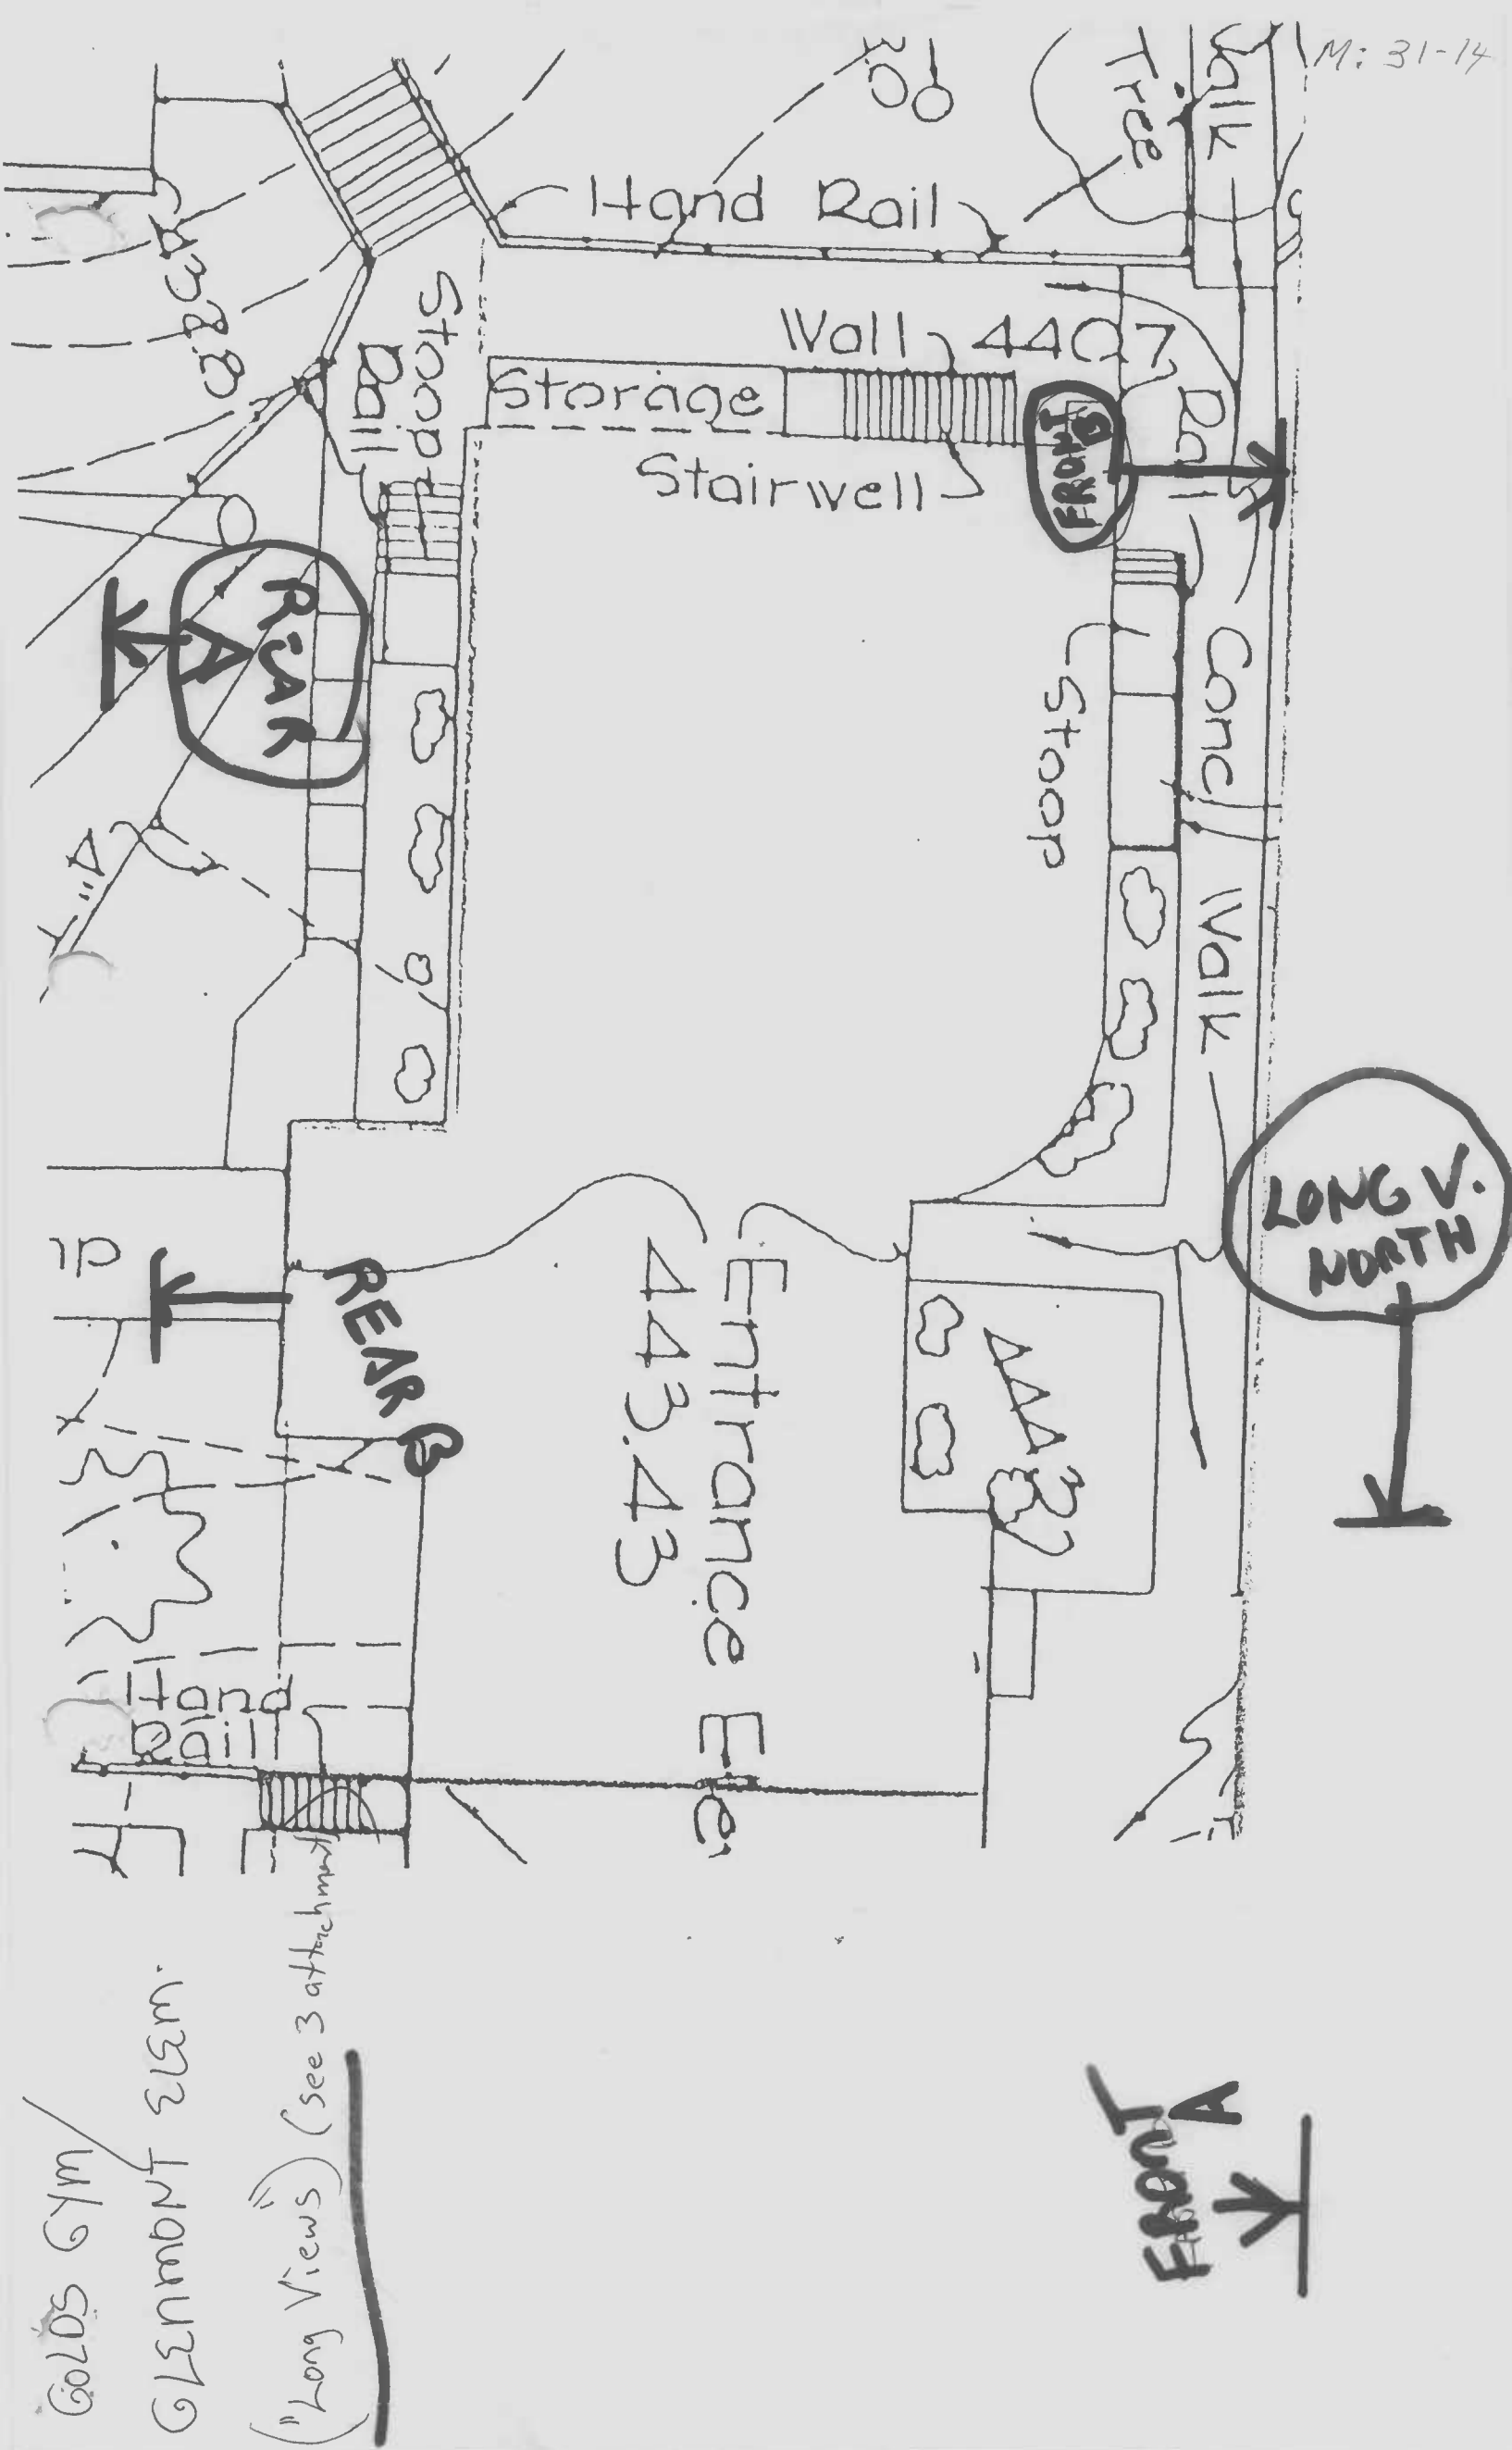 M: 31-14
Walk
Tree
Hand Rail
Wall
Storage
Stairwell
Stoop
Rail
FRONT
B
Rail
Stoop
Conc
Walk
REAR
A
LONG V.
NORTH
REAR B
Entrance Ele
443.43
Hand
Rail
GOLDS GYM/
GLENMONT ELEM.
("Long Views") (see 3 attachment
FRONT
A